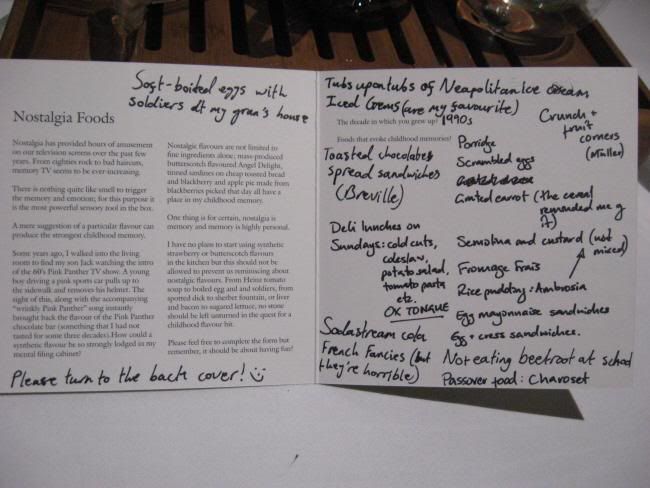 Soft-boiled eggs with
soldiers at my gran's house
Nostalgia Foods
Nostalgia has provided hours of amusement
on our television screens over the past few
years. From eighties rock to bad haircuts,
memory TV seems to be ever-increasing.
There is nothing quite like smell to trigger
the memory and emotion; for this purpose it
is the most powerful sensory tool in the box.
A mere suggestion of a particular flavour can
produce the strongest childhood memory.
Some years ago, I walked into the living
room to find my son Jack watching the intro
of the 60's Pink Panther TV show. A young
boy driving a pink sports car pulls up to
the sidewalk and removes his helmet. The
sight of this, along with the accompanying
"wrinkly Pink Panther" song instantly
brought back the flavour of the Pink Panther
chocolate bar (something that I had not
tasted for some three decades). How could a
synthetic flavour be so strongly lodged in my
mental filing cabinet?
Nostalgic flavours are not limited to
fine ingredients alone; mass-produced
butterscotch flavoured Angel Delight,
tinned sardines on cheap toasted bread
and blackberry and apple pie made from
blackberries picked that day all have a
place in my childhood memory.
One thing is for certain, nostalgia is
memory and memory is highly personal.
I have no plans to start using synthetic
strawberry or butterscotch flavours
in the kitchen but this should not be
allowed to prevent us reminiscing about
nostalgic flavours. From Heinz tomato
soup to boiled egg and soldiers, from
spotted dick to sherbet fountain, or liver
and bacon to sugared lettuce, no stone
should be left unturned in the quest for a
childhood flavour hit.
Please feel free to complete the form but
remember, it should be about having fun!
Please turn to the back cover!
Tubs upon tubs of Neapolitan Ice Cream
Iced Gems (are my favourite)
The decade in which you grew up? 1990s
Foods that evoke childhood memories?
Toasted chocolate
spread sandwiches
(Breville)
Deli lunches on
Sundays: cold cuts,
coleslaw,
potato salad,
tomato pasta
etc.
OX TONGUE
Sodastream cola
French Fancies (but
they're horrible)
Porridge
Scrambled eggs
Grated carrot (the cereal
reminded me of
it)
Semolina and custard (not
mixed)
Fromage Frais
Rice pudding: Ambrosia
Egg mayonnaise sandwiches
Egg + cress sandwiches.
Not eating beetroot at school
Passover food: Charoset
Crunch +
fruit
corners
(Müller)